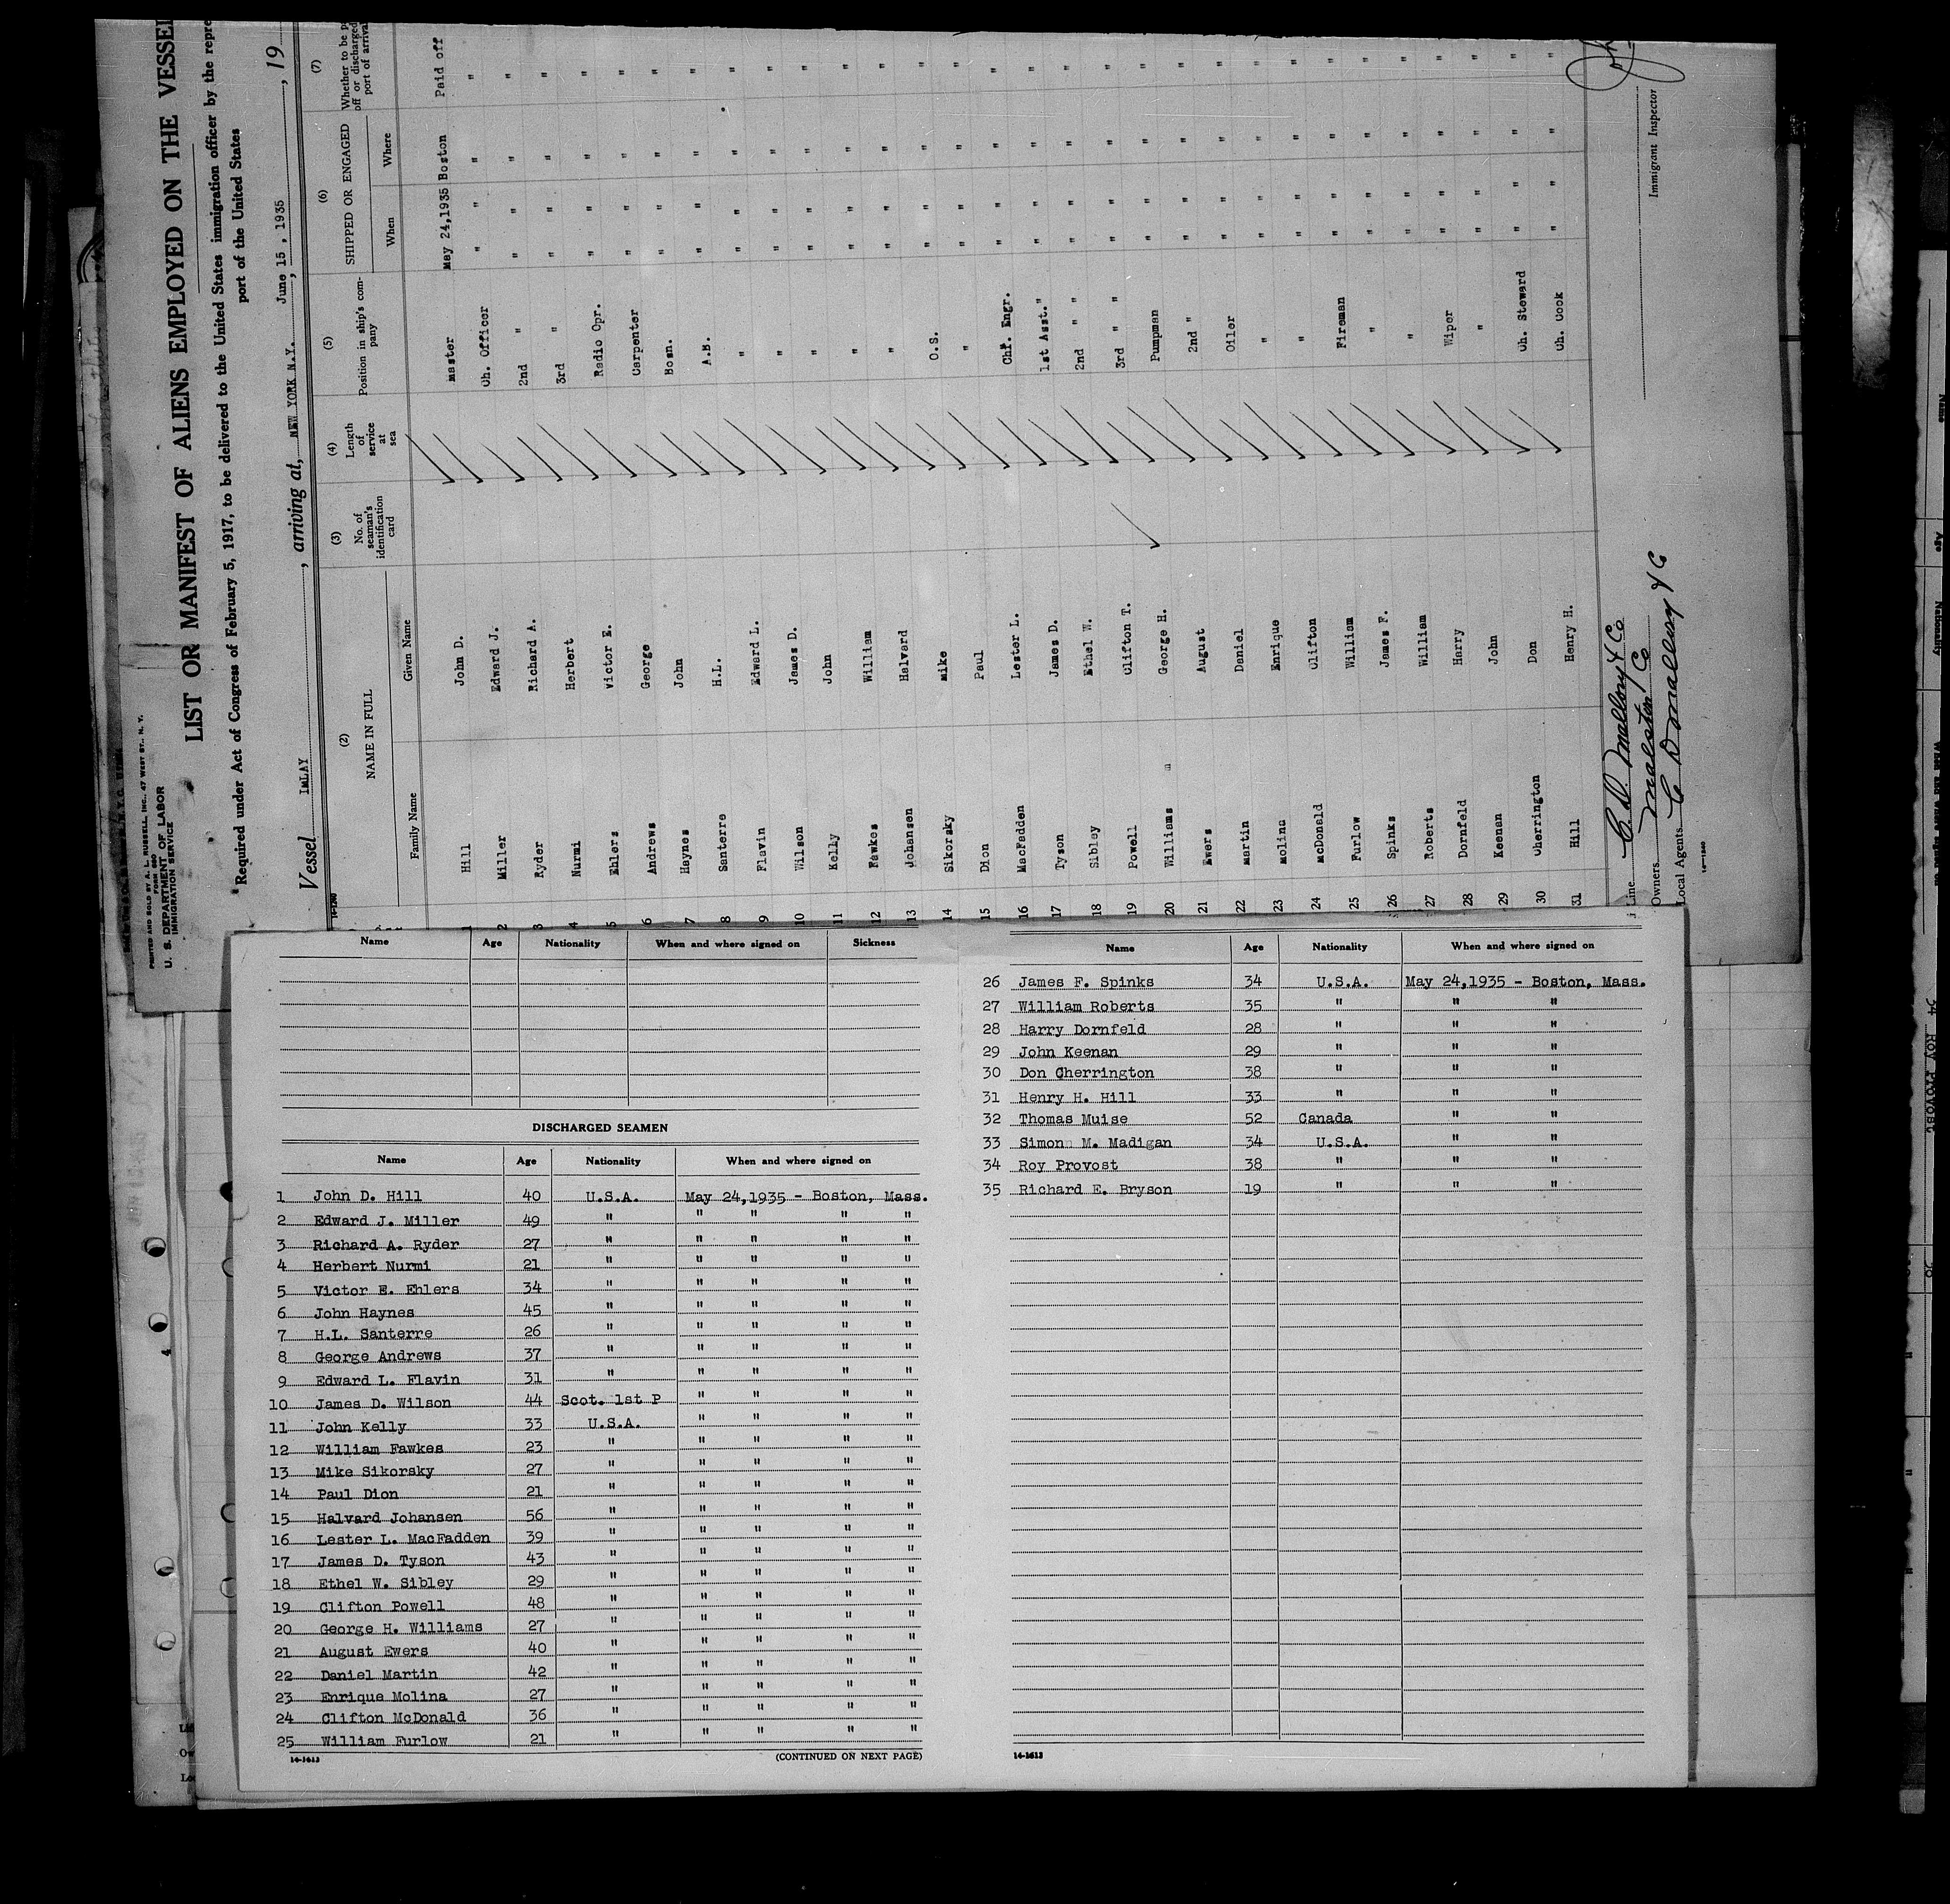 PRINTED AND SOLD BY A. L. RUSSELL, INC., 47 WEST ST., N. Y.
FORM 680
U. S. DEPARTMENT OF LABOR
IMMIGRATION SERVICE
LIST OR MANIFEST OF ALIENS EMPLOYED ON THE VESSEL
Required under Act of Congress of February 5, 1917, to be delivered to the United States immigration officer by the repre
port of the United States
Vessel IMLAY, arriving at, NEW YORK N.Y. June 15, 1935, 19
14-1240
(2) (3) (4) (5) (6) (7)
NAME IN FULL No. of seaman's identification card Length of service at sea Position in ship's company SHIPPED OR ENGAGED Whether to be p off or discharged port of arrival
Family Name Given Name When Where
1 Hill John D. Master May 24,1935 Boston Paid off
2 Miller Edward J. Ch. Officer " " " "
3 Ryder Richard A. 2nd " " " " "
4 Nurmi Herbert 3rd " " " " "
5 Ehlers Victor E. Radio Opr. " " " "
6 Andrews George Carpenter " " " "
7 Haynes John Bosn. " " " "
8 Santerre H.L. A.B. " " " "
9 Flavin Edward L. " " " " "
10 Wilson James D. " " " " "
11 Kelly John " " " " "
12 Fawkes William " " " " "
13 Johansen Halvard " " " " "
14 Sikorsky Mike O.S. " " " "
15 Dion Paul " " " " "
16 MacFadden Lester L. Chf. Engr. " " " "
17 Tyson James D. 1st Asst." " " " "
18 Sibley Ethel W. 2nd " " " " " "
19 Powell Clifton T. 3rd " " " " " "
20 Williams George H. Pumpman " " " "
21 Ewers August 2nd " " " " "
22 Martin Daniel Oiler " " " "
23 Molina Enrique " " " " "
24 McDonald Clifton " " " " "
25 Furlow William Fireman " " " "
26 Spinks James F. " " " " "
27 Roberts William " " " " "
28 Dornfeld Harry Wiper " " " "
29 Keenan John " " " " "
30 Cherrington Don Ch. Steward " " " "
31 Hill Henry H. Ch. Cook " " " "
Line C. D. Mallory & Co
Owners Malston Co
Local Agents C D Mallory & C
Immigrant Inspector
14-1240
Name Age Nationality When and where signed on Sickness
DISCHARGED SEAMEN
Name Age Nationality When and where signed on
1 John D. Hill 40 U.S.A. May 24,1935 - Boston, Mass.
2 Edward J. Miller 49 " " " " "
3 Richard A. Ryder 27 " " " " "
4 Herbert Nurmi 21 " " " " "
5 Victor E. Ehlers 34 " " " " "
6 John Haynes 45 " " " " "
7 H.L. Santerre 26 " " " " "
8 George Andrews 37 " " " " "
9 Edward L. Flavin 31 " " " " "
10 James D. Wilson 44 Scot. 1st P " " " "
11 John Kelly 33 U.S.A. " " " "
12 William Fawkes 23 " " " " "
13 Mike Sikorsky 27 " " " " "
14 Paul Dion 21 " " " " "
15 Halvard Johansen 56 " " " " "
16 Lester L. MacFadden 39 " " " " "
17 James D. Tyson 43 " " " " "
18 Ethel W. Sibley 29 " " " " "
19 Clifton Powell 48 " " " " "
20 George H. Williams 27 " " " " "
21 August Ewers 40 " " " " "
22 Daniel Martin 42 " " " " "
23 Enrique Molina 27 " " " " "
24 Clifton McDonald 36 " " " " "
25 William Furlow 21 " " " " "
14-1613 (CONTINUED ON NEXT PAGE)
Name Age Nationality When and where signed on
26 James F. Spinks 34 U.S.A. May 24,1935 - Boston, Mass.
27 William Roberts 35 " " "
28 Harry Dornfeld 28 " " "
29 John Keenan 29 " " "
30 Don Cherrington 38 " " "
31 Henry H. Hill 33 " " "
32 Thomas Muise 52 Canada " "
33 Simon M. Madigan 34 U.S.A. " "
34 Roy Provost 38 " " "
35 Richard E. Bryson 19 " " "
14-1613